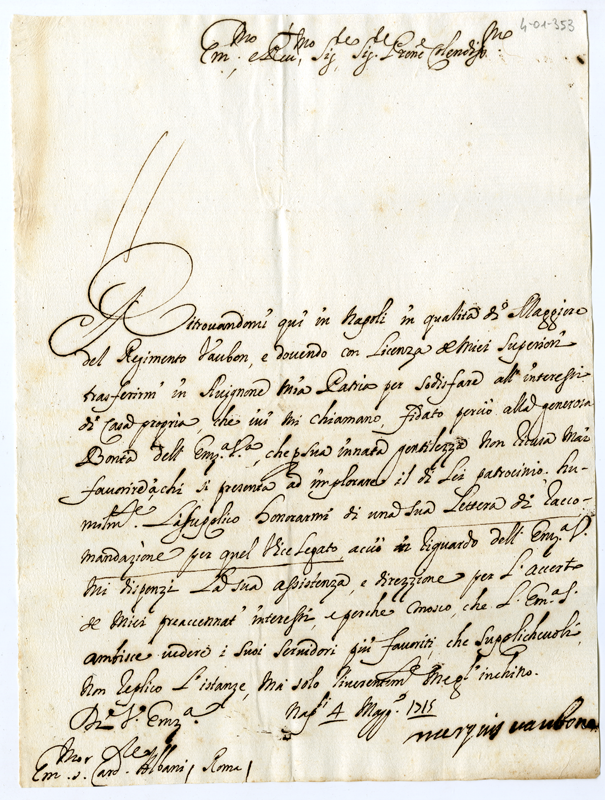 4-01-353
Em.mo e Reu.mo Sig.re Sig.re Prone Colendis.mo
Ritrouandomi qui in Napoli in qualità di Maggiore
del Regimento Vaubon, e douendo con licenza de Miei Superiori
trasferirmi in Auignone mia Patria per sodisfare all'interessi
di Casa propria, che iui mi chiamano, fidato perciò alla generosa
Bontà dell'Em.za S.a, che p sua innata gentilezza non ricusa mai
fauorire à chi si presenta ad implorare il di Lei patrocinio, hu-
milm.te La supplico honorarmi di una sua Lettera di racco-
mandazione per quel Vice Legato, acciò in riguardo dell'Em.za S.
Mi dispenzi La sua assistenza, e direzzione per l'accerto
de Miei preaccennati interessi, e perche conosco, che L'Em.za S.
ambisce uedere i suoi seruidori più fauoriti, che supplicheuoli,
Non replico L'istanze, Ma solo riuerentem.te me gl'inchino.
Di V. Em.za
Nap.li 4 Magg.o 1715
marquis vaubone
Em.mo S. Card.le Albani / Roma /